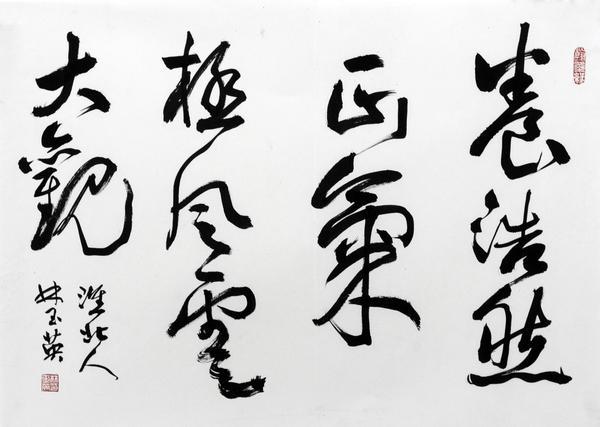 養浩然
正氣
極風雲
大觀
淮北人
玉英